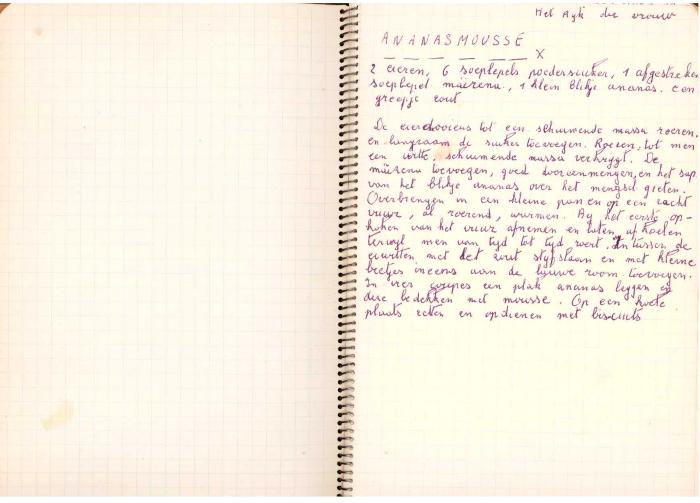 Het Rijk der vrouw
ANANASMOUSSE
X
2 eieren, 6 soeplepels poedersuiker, 1 afgestreken
soeplepel maïzena, 1 klein blikje ananas. een
greepje zout
De eierdooiers tot een schuimende massa roeren,
en langzaam de suiker toevoegen. Roeren, tot men
een witte, schuimende massa verkrijgt. De
maïzena toevoegen, goed dooreenmengen, en het sap
van het blikje ananas over het mengsel gieten.
Overbrengen in een kleine pan en op een zacht
vuur, al roerend, warmen. Bij het eerste op-
koken van het vuur afnemen en laten afkoelen
terwijl men van tijd tot tijd roert. Intussen de
eiwitten met het zout stijfslaan en met kleine
beetjes ineens aan de lauwe room toevoegen.
In vier coupes een plak ananas leggen en
deze bedekken met mousse. Op een koele
plaats zetten en opdienen met biscuits